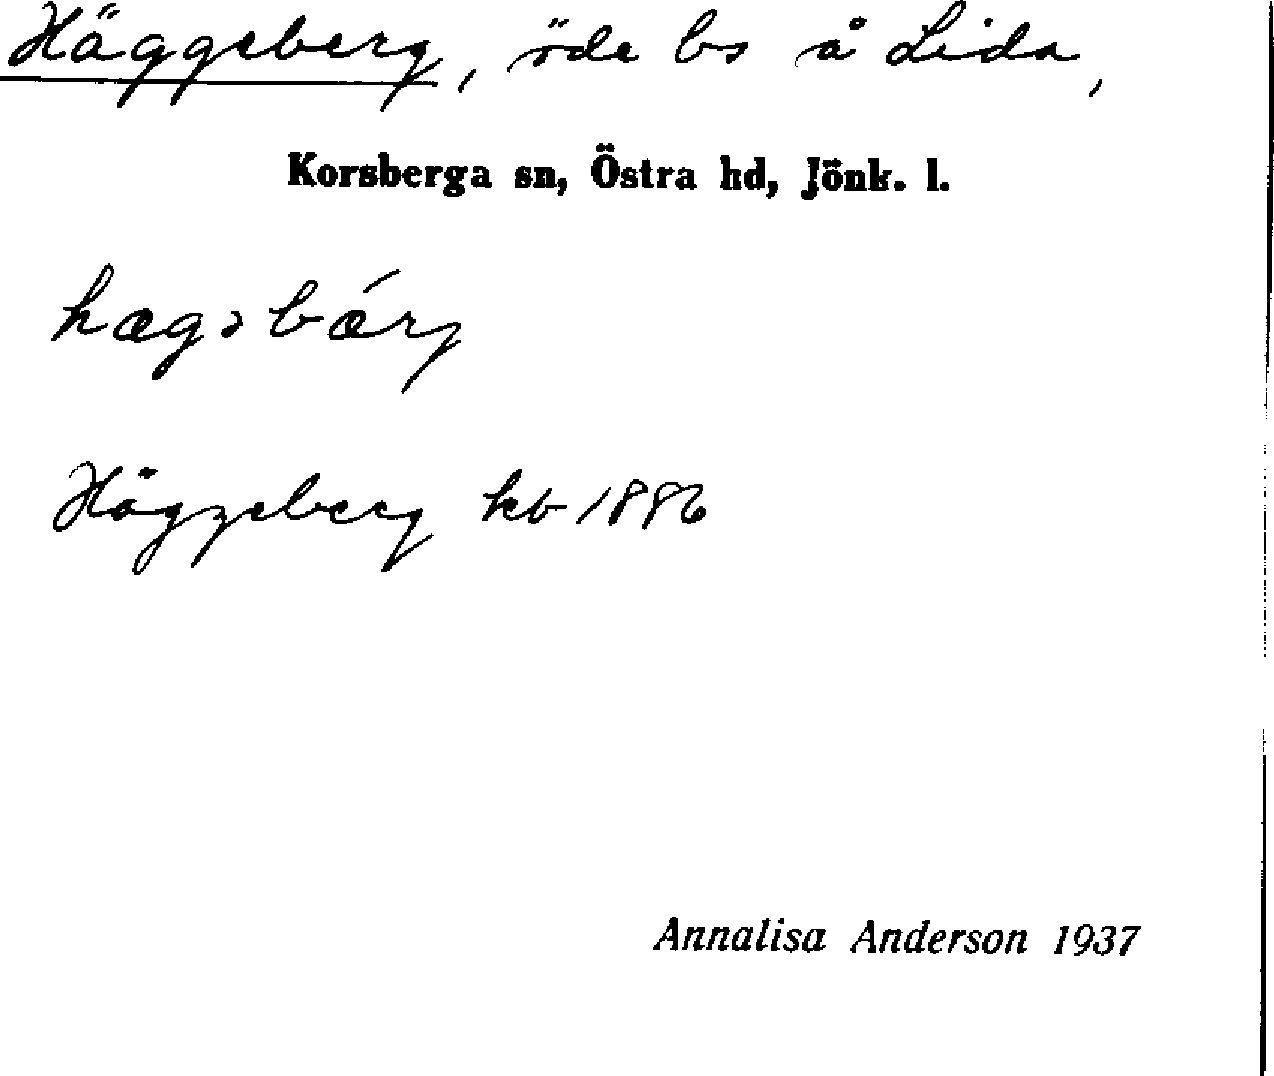 Häggeberg, öde bs å Lida,
Korsberga sn, Östra hd, Jönk. l.
hægəbǽrj
Häggeberg kb 1886
Annalisa Anderson 1937